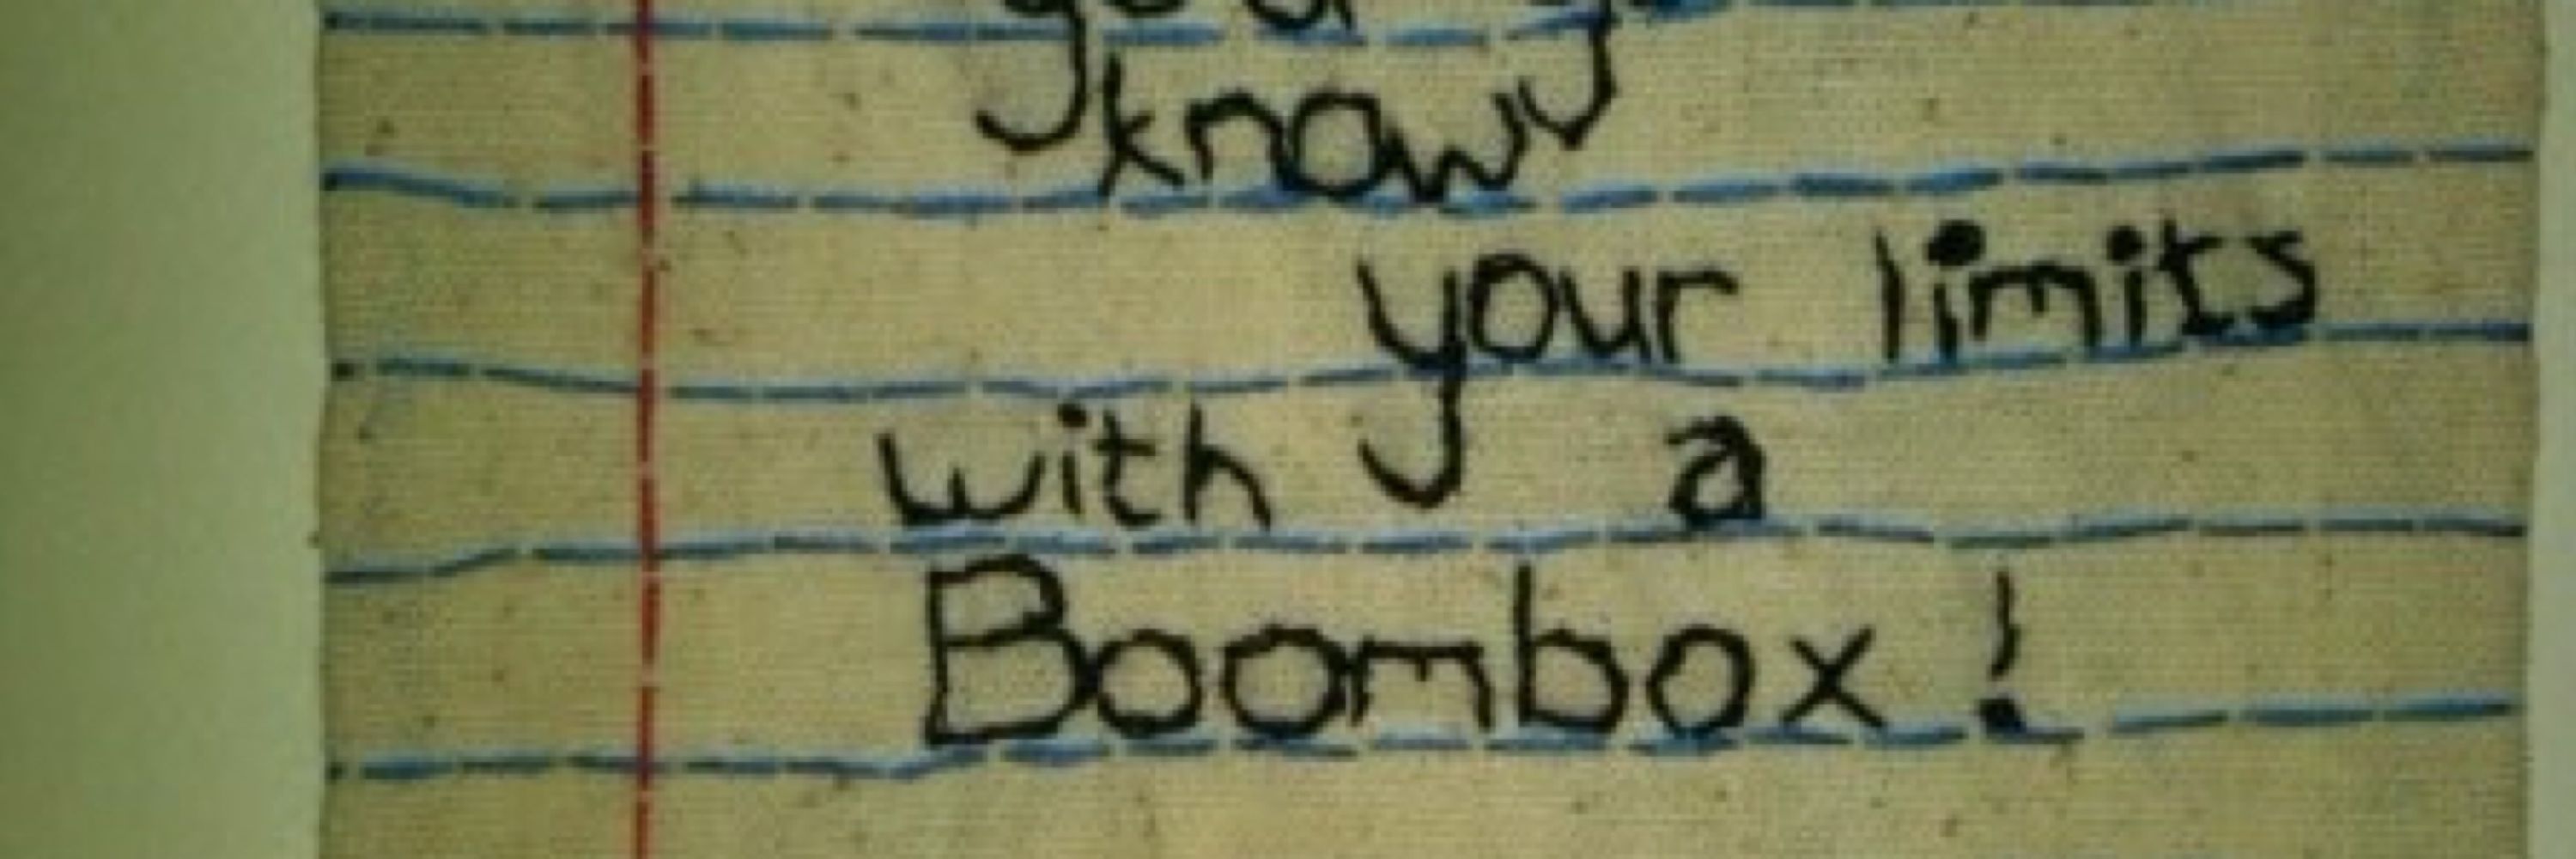 know
your limits
with a
Boombox!